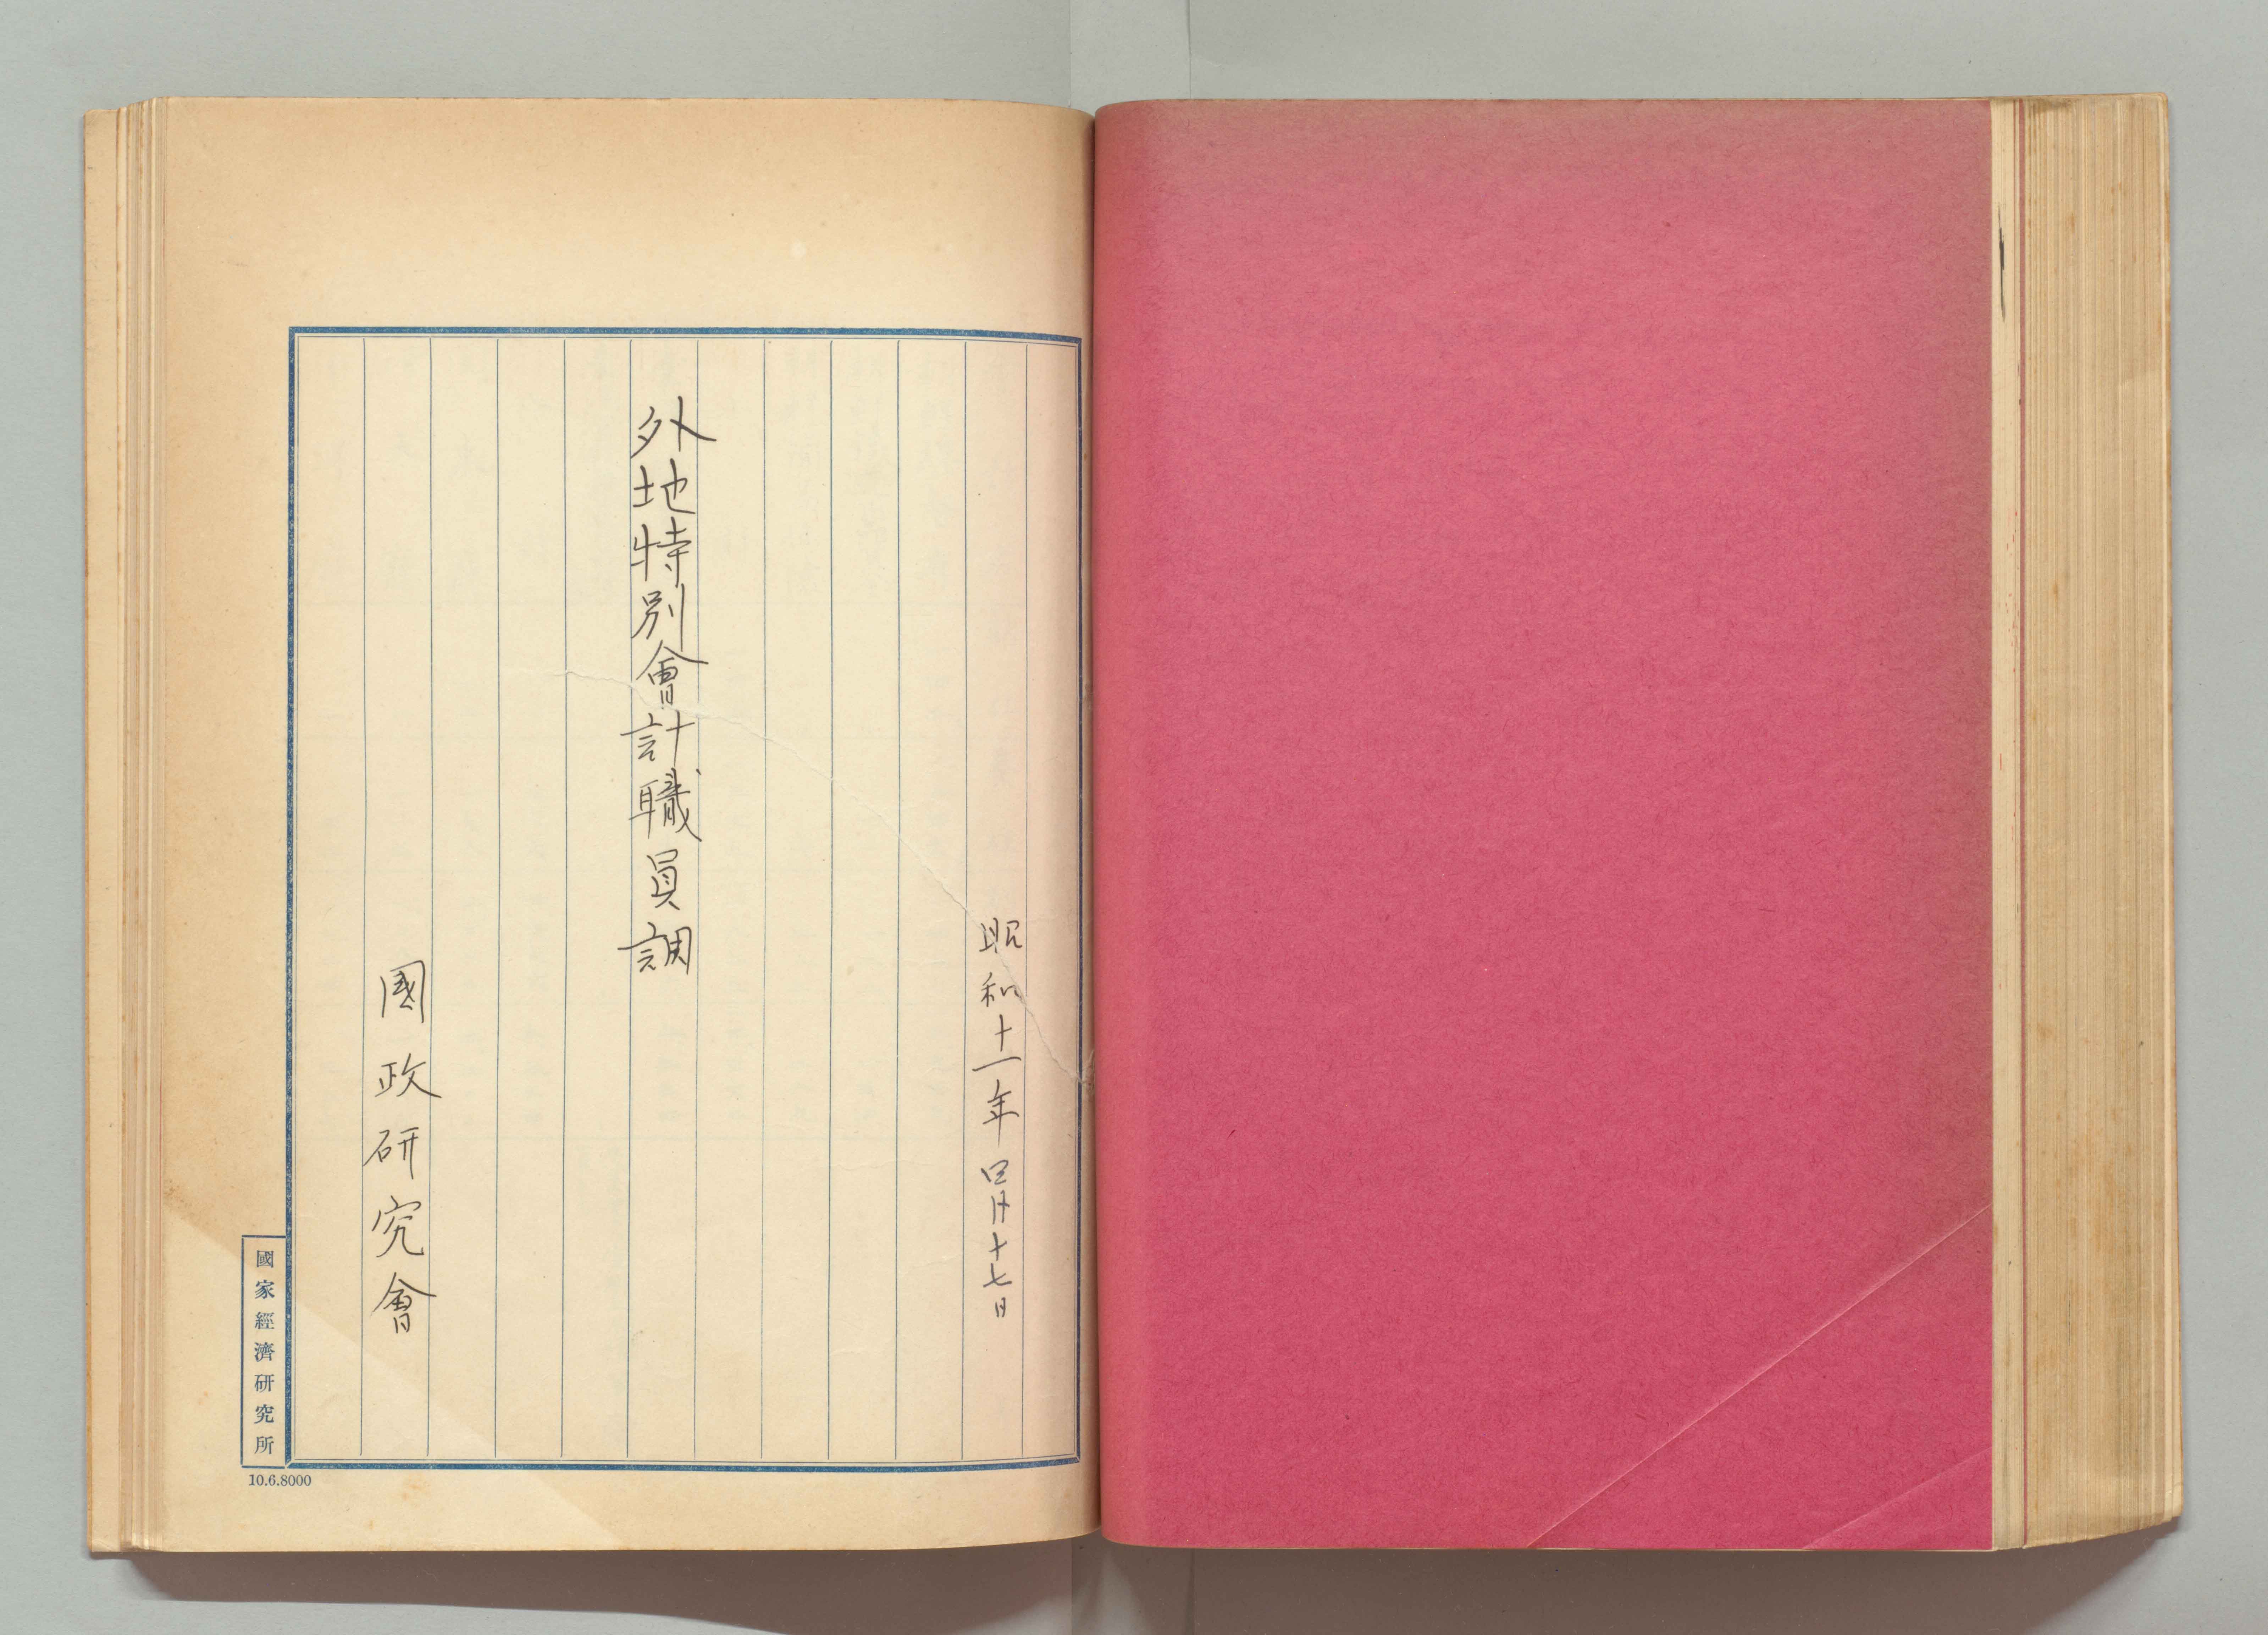 昭和十一年四月十七日
外地特別會計職員調
國政研究會
國家經濟研究所
10.6.8000